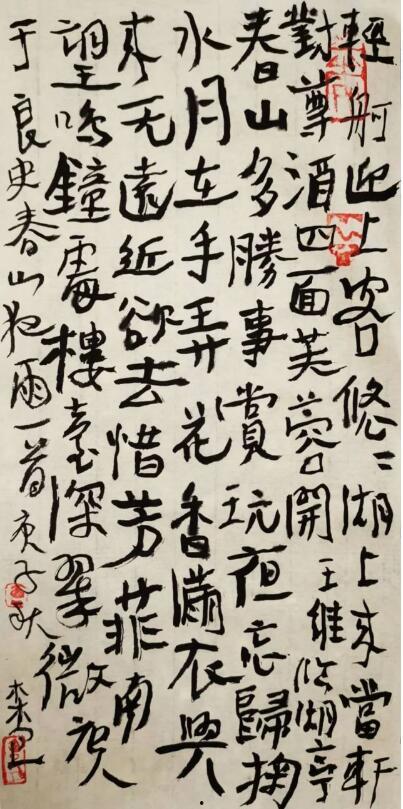 輕舸迎上客悠悠湖上来當軒
對尊酒四面芙蓉開王維臨湖亭
春山多勝事賞玩夜忘歸掬
水月在手弄花香滿衣興
来无遠近欲去惜芳菲南
望鳴鐘處樓臺深翠微唐人
于良史春山夜雨一首庚子秋